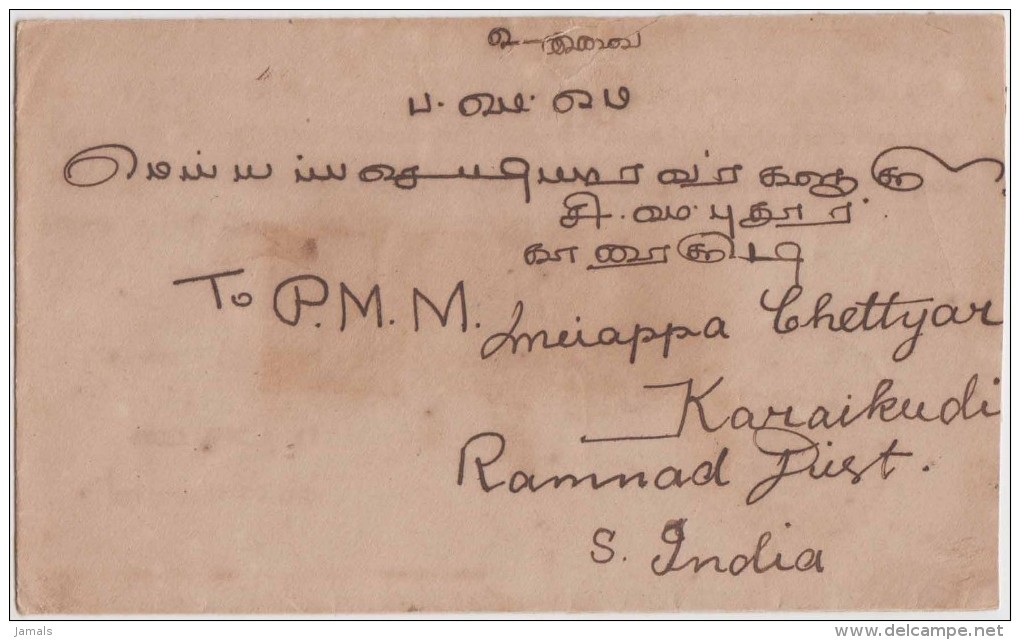 மெய்யப்ப செட்டியாரவர்களுக்கு
சி.மெ.புதூர்
காரைகுடி
To P.M.M. Meiappa Chettyar
Karaikudi
Ramnad Dist.
S. India
jamals
www.delcampe.net